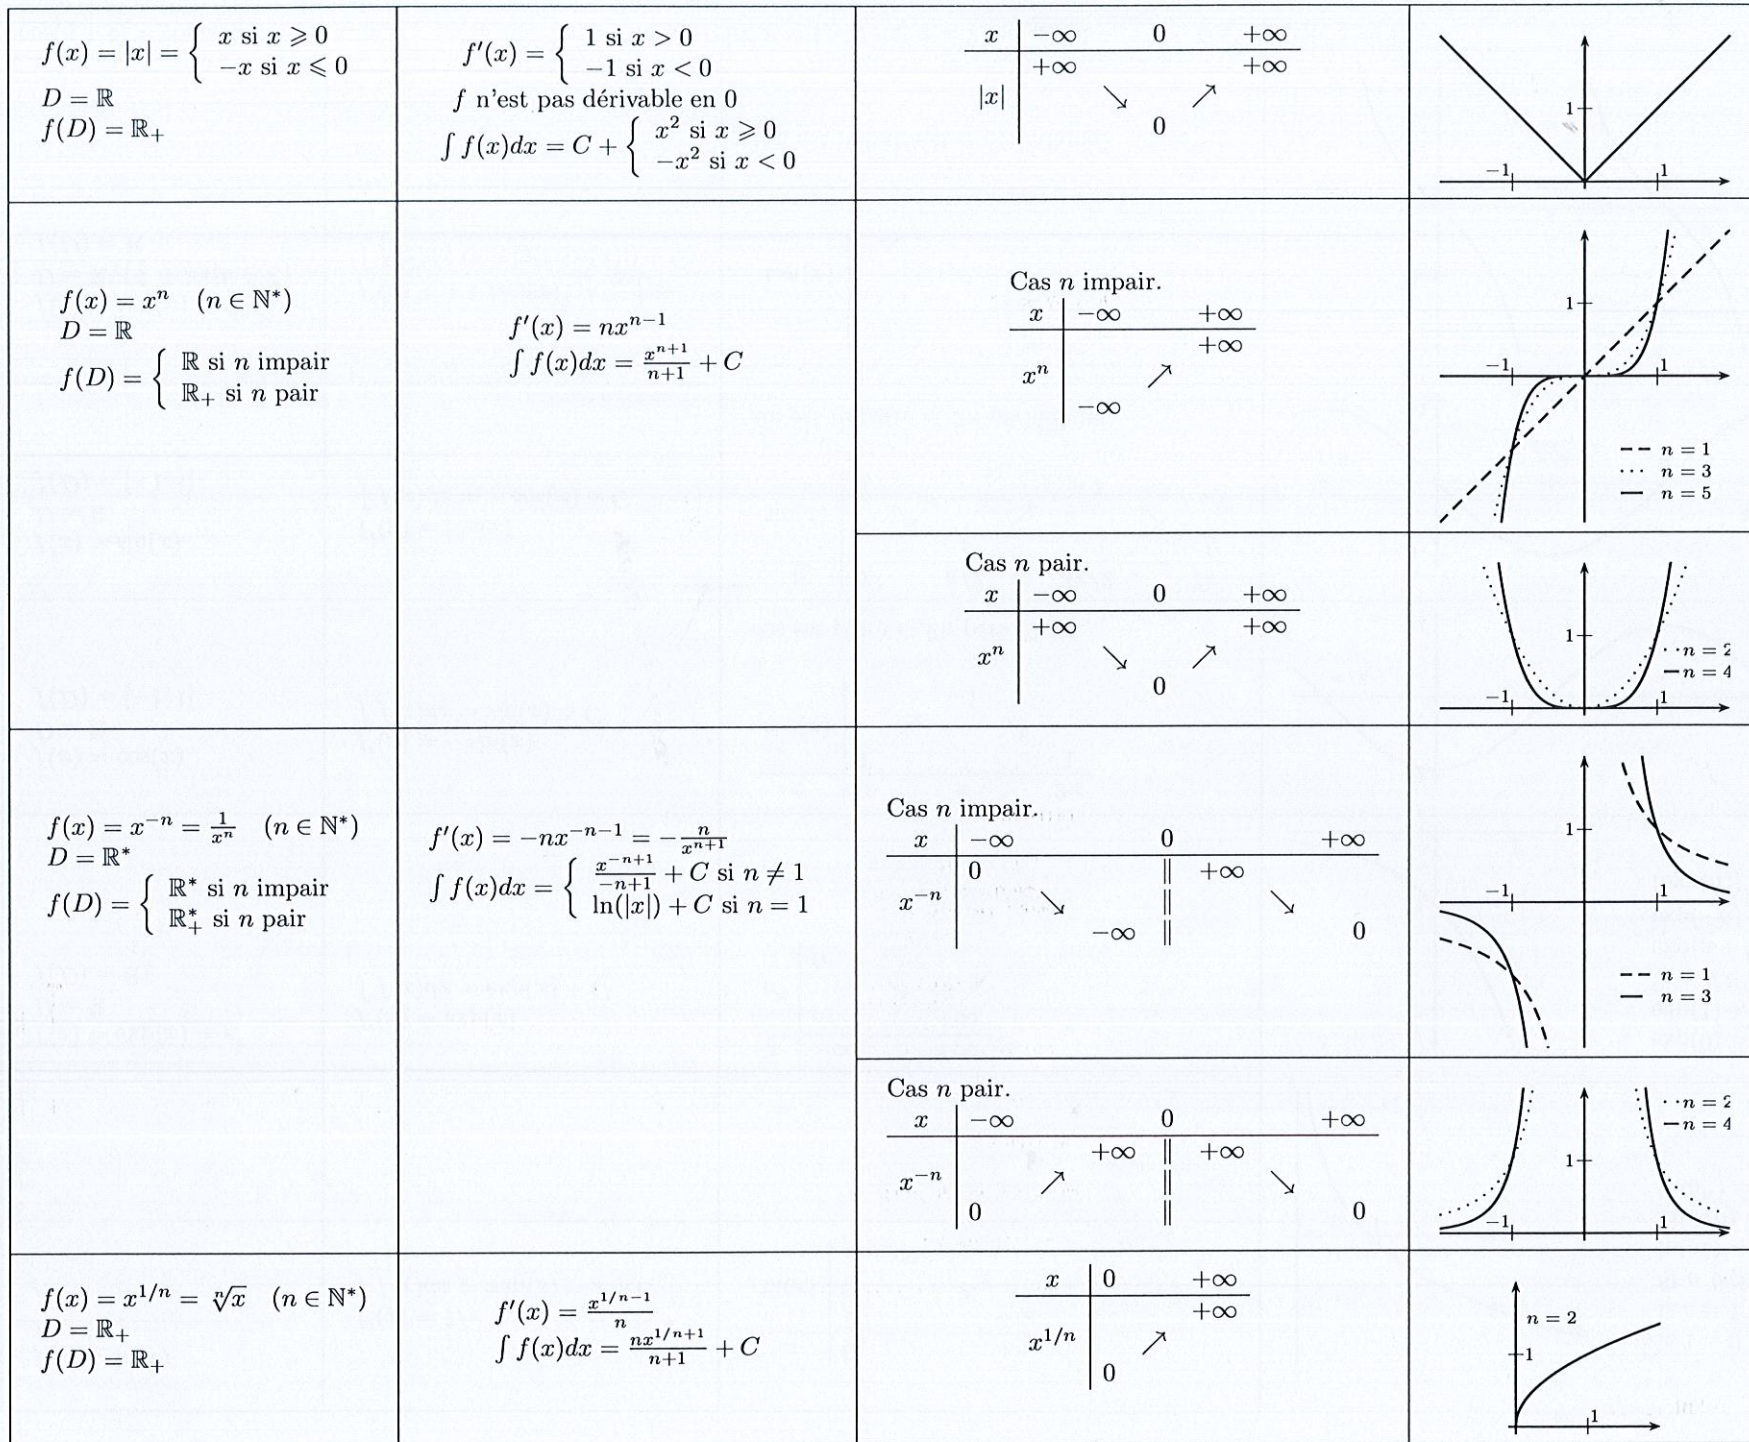 f(x) = |x| = { x si x ⩾ 0
−x si x ⩽ 0
D = ℝ
f(D) = ℝ₊
f′(x) = { 1 si x > 0
−1 si x < 0
f n'est pas dérivable en 0
∫ f(x)dx = C + { x² si x ⩾ 0
−x² si x < 0
x −∞ 0 +∞
+∞ +∞
|x| ↘ ↗
0
1
−1 1
f(x) = xⁿ (n ∈ ℕ*)
D = ℝ
f(D) = { ℝ si n impair
ℝ₊ si n pair
f′(x) = nxⁿ⁻¹
∫ f(x)dx = xⁿ⁺¹/n+1 + C
Cas n impair.
x −∞ +∞
+∞
xⁿ ↗
−∞
1
−1 1
n = 1
n = 3
n = 5
Cas n pair.
x −∞ 0 +∞
+∞ +∞
xⁿ ↘ ↗
0
1
n = 2
n = 4
−1 1
f(x) = x⁻ⁿ = 1/xⁿ (n ∈ ℕ*)
D = ℝ*
f(D) = { ℝ* si n impair
ℝ*₊ si n pair
f′(x) = −nx⁻ⁿ⁻¹ = −n/xⁿ⁺¹
∫ f(x)dx = { x⁻ⁿ⁺¹/−n+1 + C si n ≠ 1
ln(|x|) + C si n = 1
Cas n impair.
x −∞ 0 +∞
0 || +∞
x⁻ⁿ ↘ || ↘
−∞ || 0
1
−1 1
n = 1
n = 3
Cas n pair.
x −∞ 0 +∞
+∞ || +∞
x⁻ⁿ ↗ || ↘
0 || 0
n = 2
n = 4
1
−1 1
f(x) = x^{1/n} = ⁿ√x (n ∈ ℕ*)
D = ℝ₊
f(D) = ℝ₊
f′(x) = x^{1/n−1}/n
∫ f(x)dx = nx^{1/n+1}/n+1 + C
x 0 +∞
+∞
x^{1/n} ↗
0
n = 2
1
1